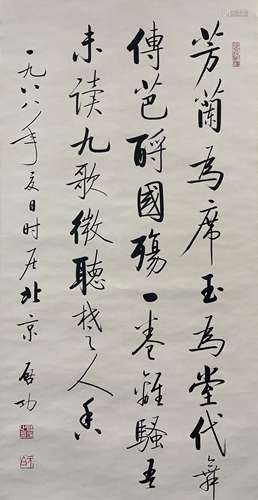 芳蘭為席玉為堂代舞
傳芭酹國殤一卷離騷吾
未讀九歌微聽楚人香
一九八八年夏日时居北京 启功